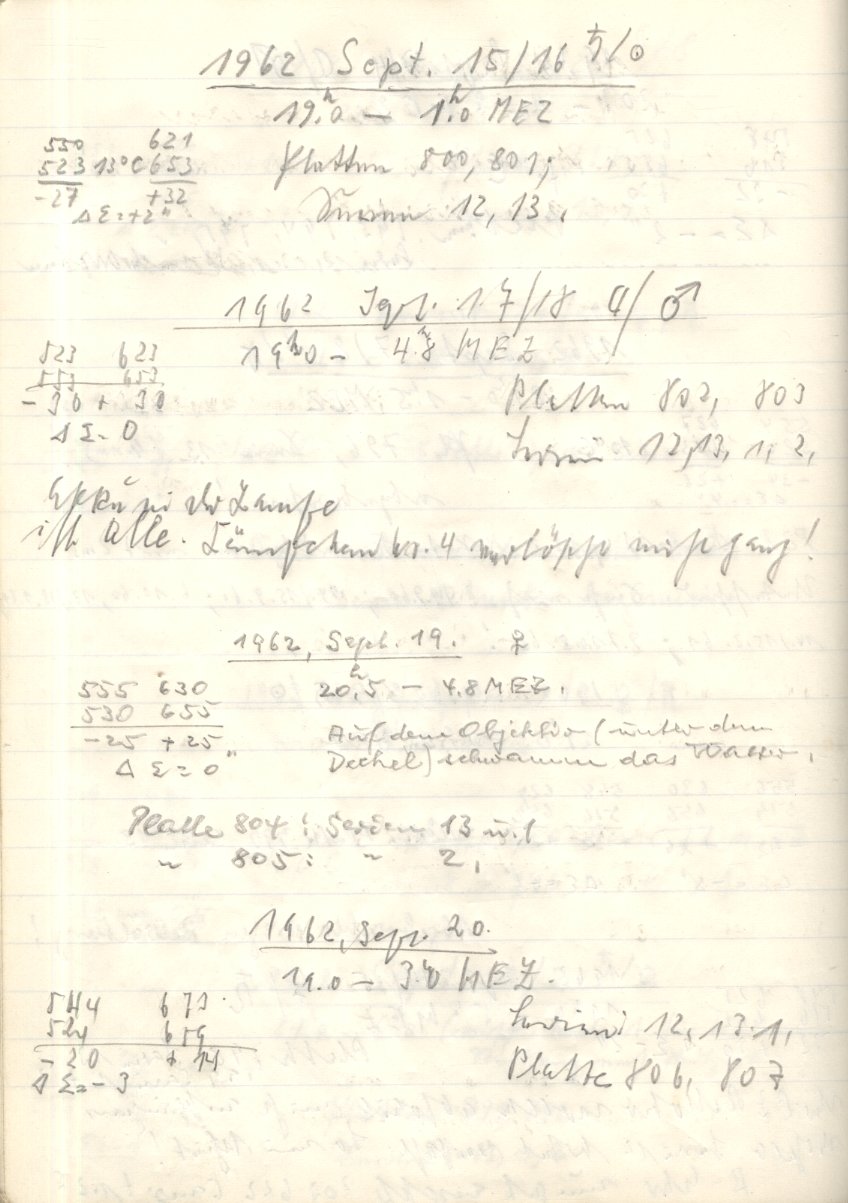 1962 Sept. 15/16 ♄/☉
19.ʰ0 — 1.ʰ0 MEZ
550 621
523 13°C 653
-27 +32
ΔΣ=+2"
Platten 800, 801;
Serien 12, 13.
1962 Sept. 17/18 ☾/♂
19ʰ0 — 4.ʰ8 MEZ
523 623
553 653
-30 + 30
ΔΣ= 0
Platten 802, 803
Serien 12, 13, 1, 2.
Akku für die Lampe
ist alle. Lämpchen Nr. 4 verlöscht nicht ganz!
1962, Sept. 19. ♀
20.ʰ5 — 4.8 MEZ.
555 630
530 655
-25 +25
ΔΣ= 0"
Auf dem Objektiv (unter dem
Deckel) schwamm das Wasser.
Platte 804: Serien 13 u. 1
" 805: " 2.
1962, Sept. 20.
19.0 — 3.ʰ0 MEZ.
544 673
524 659
-20 + 14
ΔΣ=- 3
Serien 12, 13. 1,
Platte 806, 807